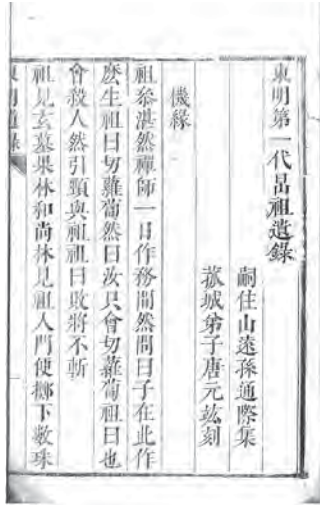 東明第一代旵祖遺錄
嗣住山遠孫通際集
菰城弟子唐元竑刻
機緣
祖參湛然禪師一日作務間然問曰子在此作
麽生祖曰切蘿蔔然曰汝只會切蘿蔔祖曰也
會殺人然引頸與祖祖曰敗將不斬
祖見玄墓果林和尚林見祖入門便擲下數珠
東明遺錄